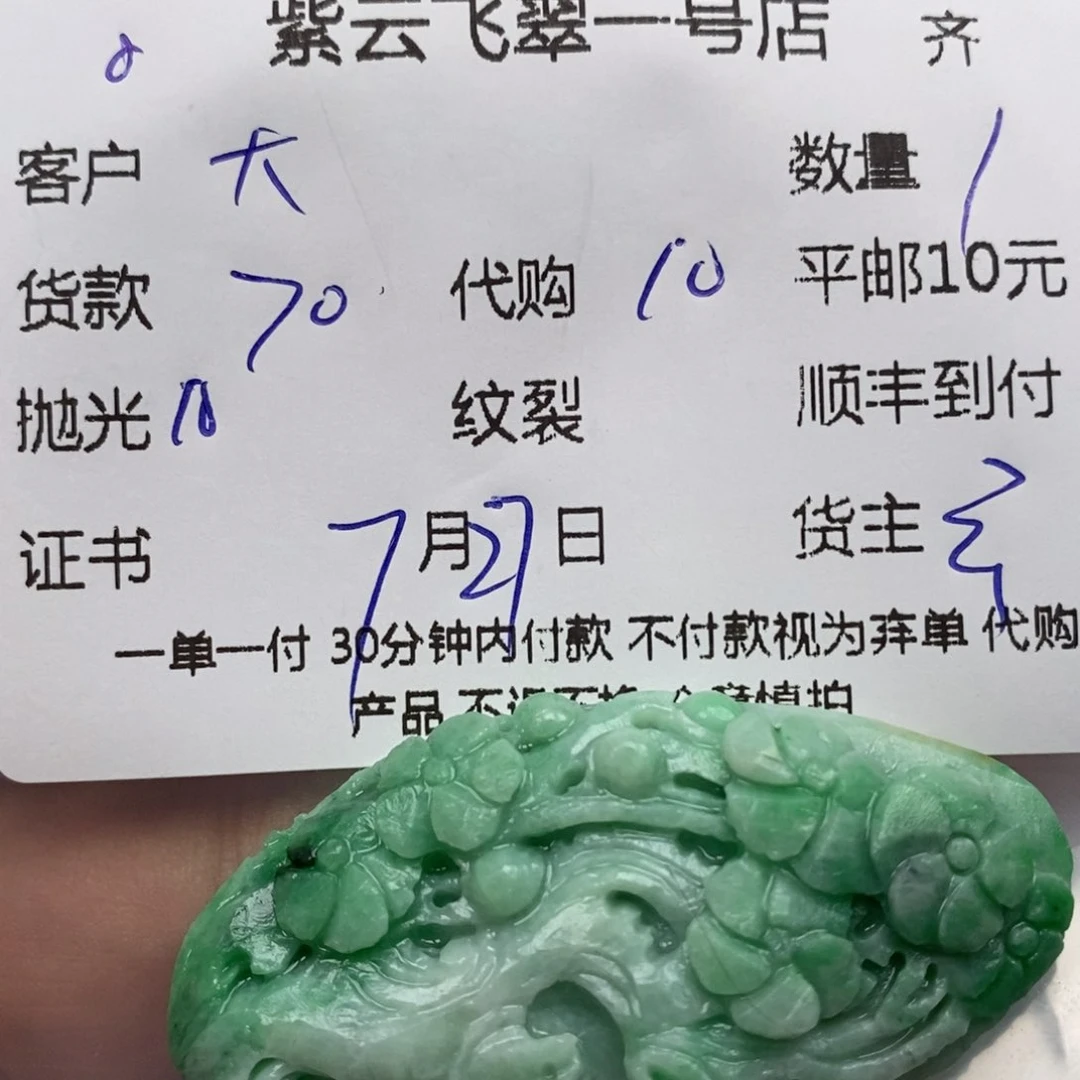 紫云飞翠一号店 齐
客户 大 数量 1
货款 70 代购 10 平邮10元
抛光 10 纹裂 顺丰到付
证书 7月27日 货主
一单一付 30分钟内付款 不付款视为弃单 代购
产品 不退不换 慎拍